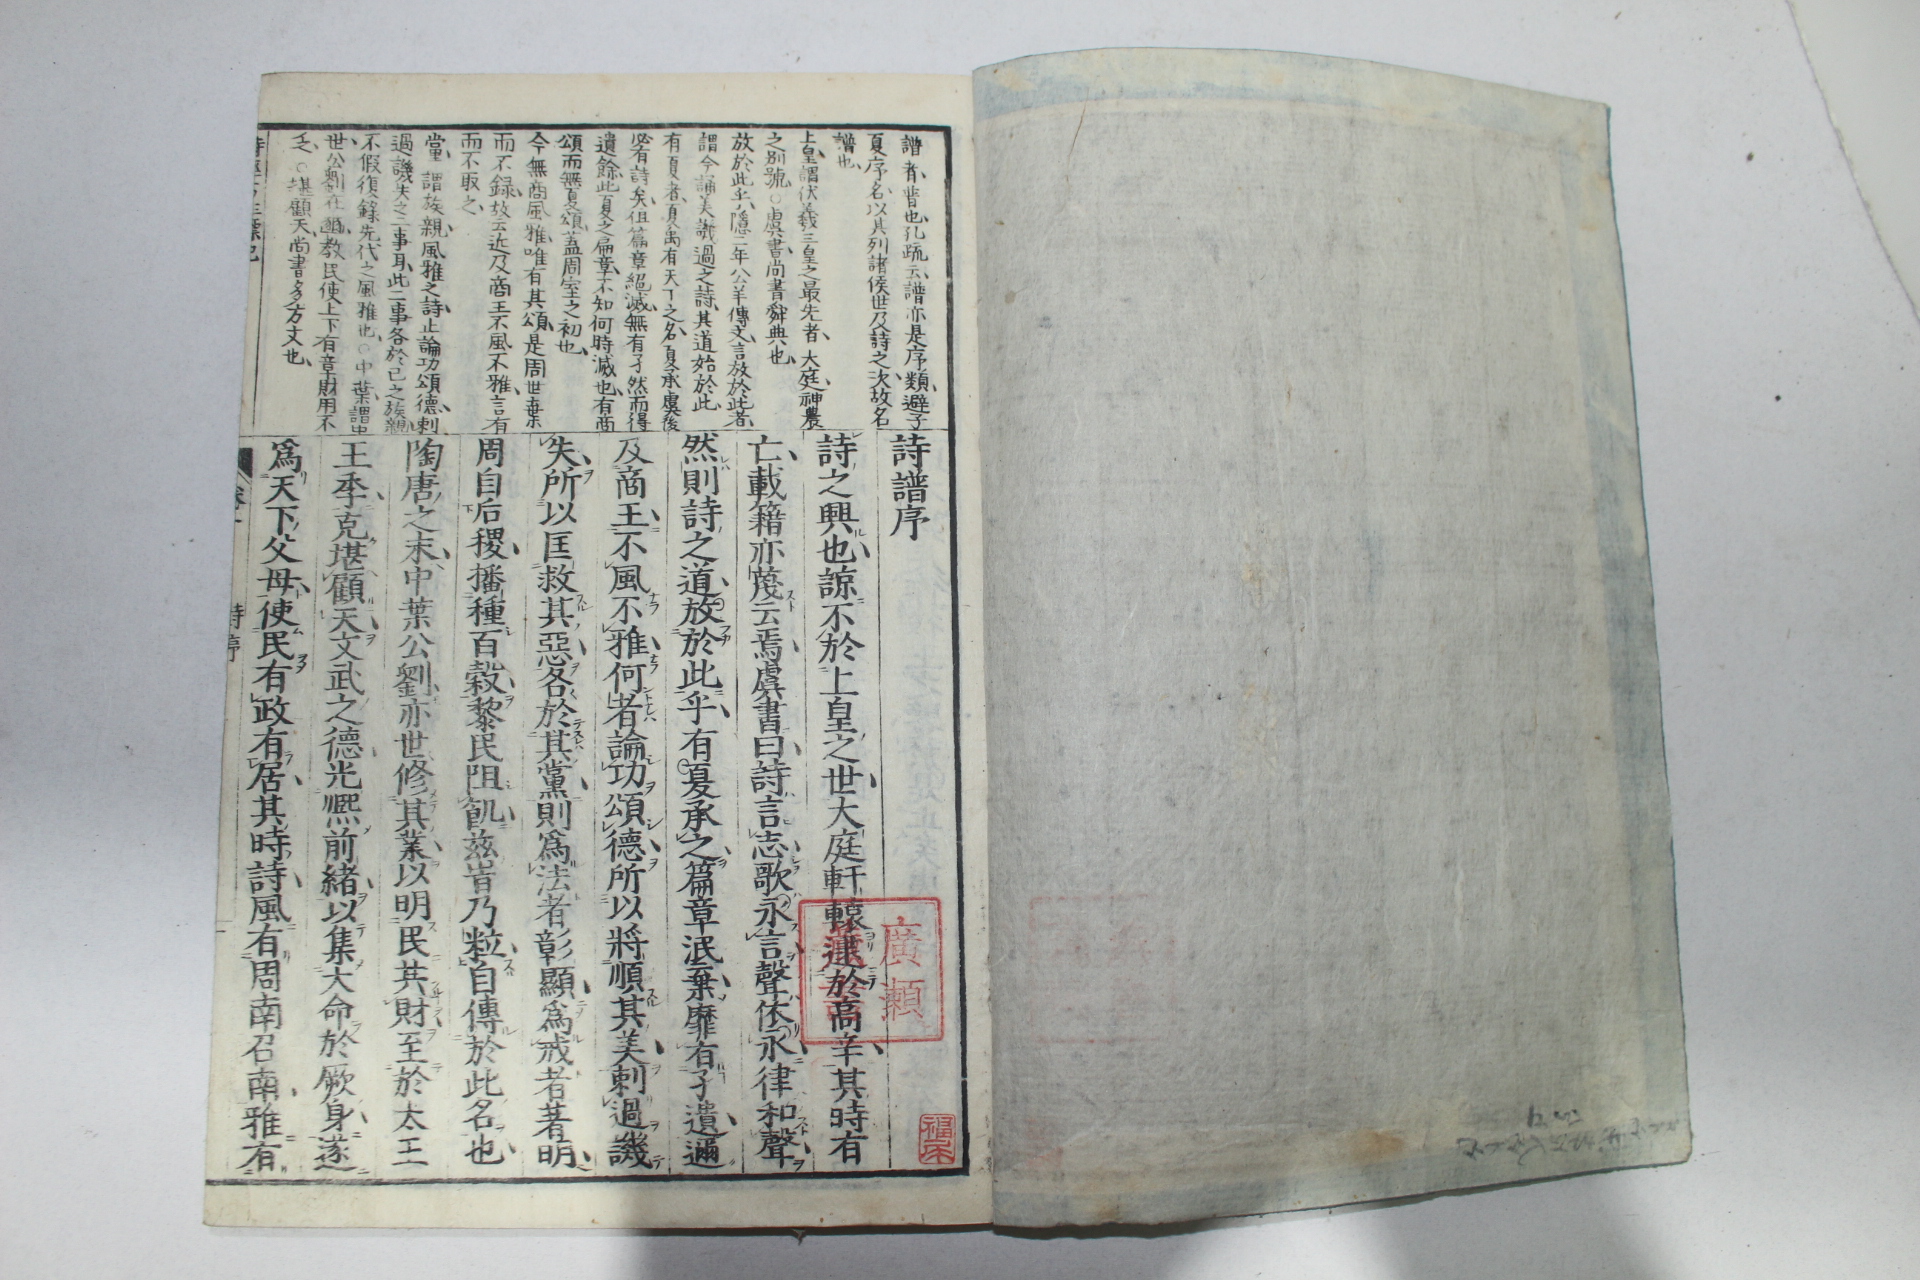 譜者普也孔疏云譜亦是序類避子
夏序名以其列諸侯世及詩之次故名
譜也
上皇謂伏羲三皇之最先者大庭神農
之別號○虞書尚書舜典也
放於此乎隱二年公羊傳文言放於此者
謂今誦美譏過之詩其道始於此
有夏者夏禹有天下之名夏承虞後
必有詩矣但篇章絕滅無有孑然而得
遺餘此夏之篇章不知何時滅也有商
頌而無夏頌蓋周室之初也
今無商風雅唯有其頌是周世棄
而不錄故云近及商王不風不雅言有
而不取之
黨謂族親風雅之詩止論功頌德刺
過譏失之二事耳此二事各於己之族親
不假復錄先代之風雅也○中葉謂中
世公劉在豳教民使上下有章財用不
乏○堪顧天尚書多方文也
詩譜序
詩之興也諒不於上皇之世大庭軒轅逮於高辛其時有
亡載籍亦蔑云焉虞書曰詩言志歌永言聲依永律和聲
然則詩之道放於此乎有夏承之篇章泯棄靡有孑遺邇
及商王不風不雅何者論功頌德所以將順其美刺過譏
失所以匡救其惡各於其黨則爲法者彰顯爲戒者著明
周自后稷播種百穀黎民阻飢茲時乃粒自傳於此名也
陶唐之末中葉公劉亦世修其業以明民共財至於太王
王季克堪顧天文武之德光熙前緒以集大命於厥身遂
爲天下父母使民有政有居其時詩風有周南召南雅有
詩序
廣瀨